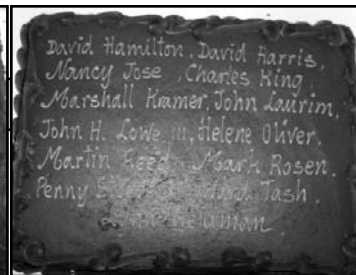 David Hamilton, David Harris,
Nancy Jose, Charles King,
Marshall Kramer, John Laurim,
John H. Lowe III, Helene Oliver,
Martin Reed, Mark Rosen,
Penny Tash,